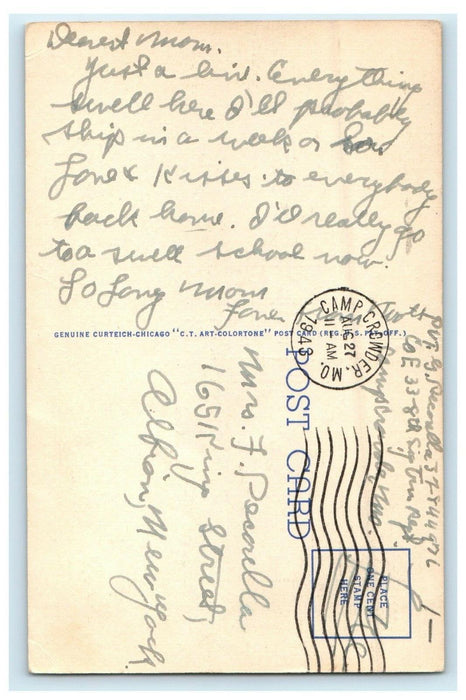 Dearest Mom.
Just a line. Everything
swell here I'll probably
ship in a week or so
Love & Kisses to everybody
back home. I'll really go
to a swell school now.
So Long Mom
Love
GENUINE CURTEICH-CHICAGO "C.T. ART-COLORTONE" POST CARD (REG. U.S. PAT. OFF.)
CAMP CROWDER, MO.
AUG 27
11 AM
1943
Pvt. G. Pecorella
Co E 33
Camp Crowder, Mo.
POST CARD
Mrs. F. Pecorella
165 King Street,
Albion, New York
PLACE
ONE CENT
STAMP
HERE